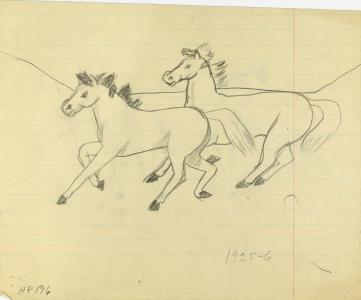 1925-6
HP196